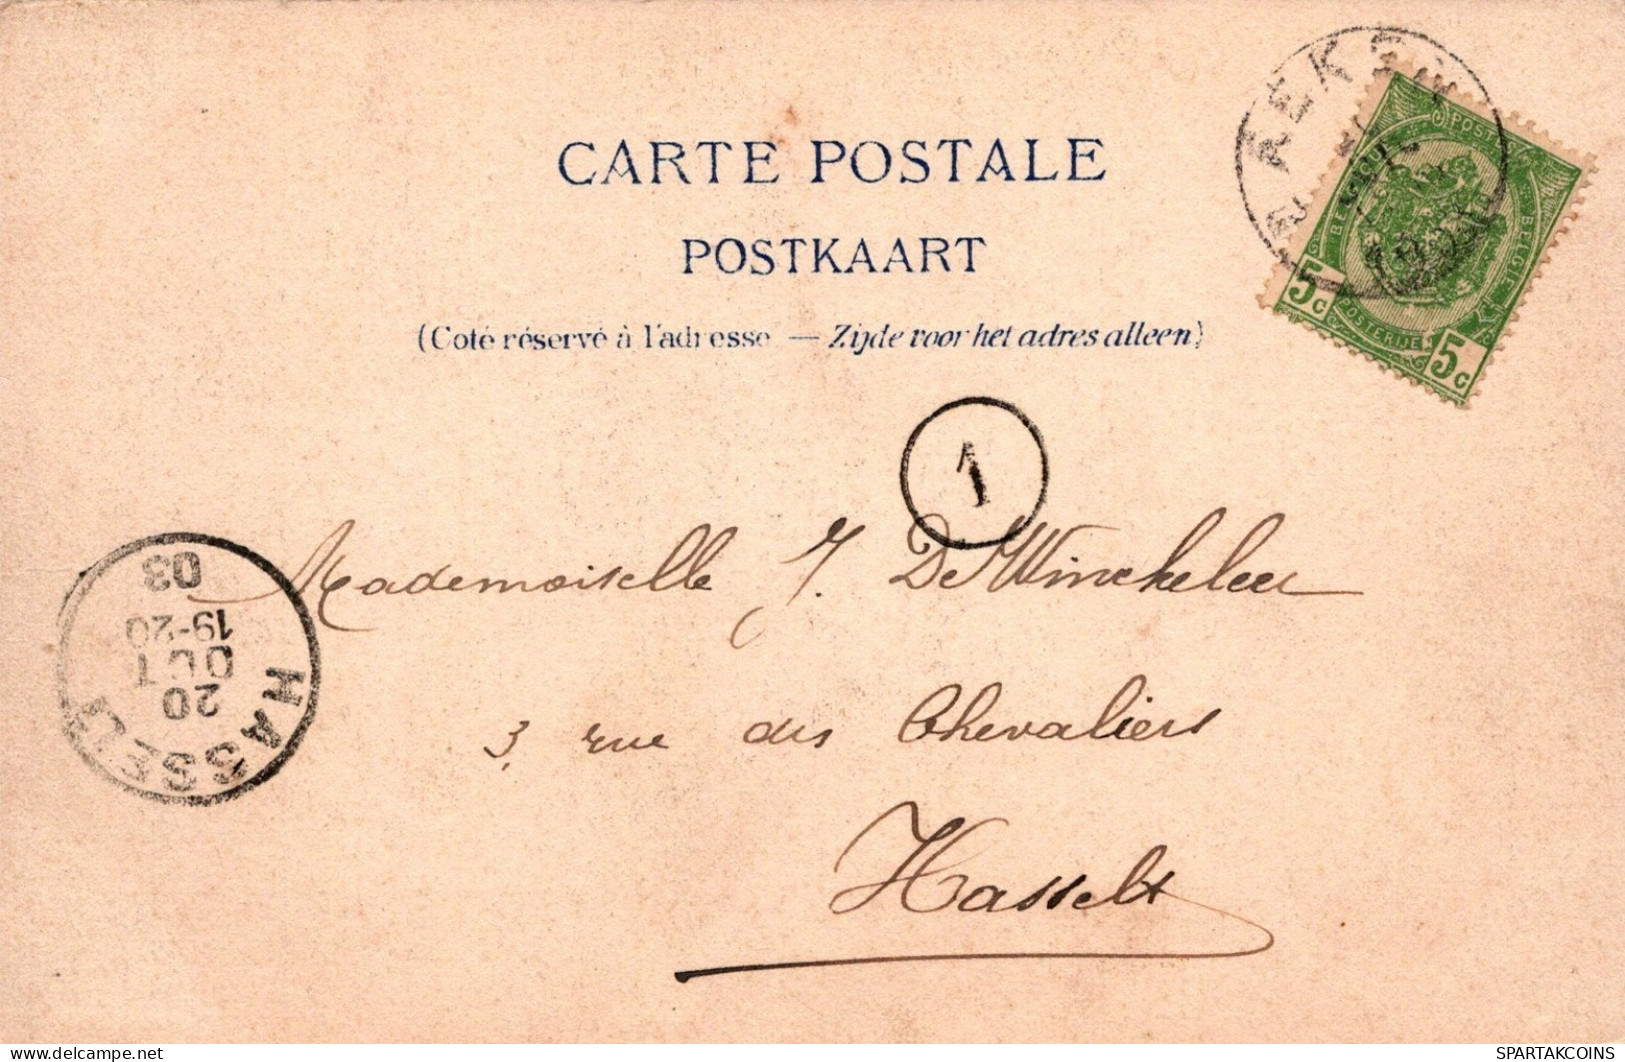 CARTE POSTALE
POSTKAART
(Coté réservé à l'adresse — Zijde voor het adres alleen)
MAEKSEYCK
POSTES
BELGIQUE
POSTERIJEN
5c
5c
1
Mademoiselle J. De Winckeleer
3, rue des Chevaliers
Hasselt
HASSELT
20
OCT
19-20
03
delcampe.net
SPARTAKCOINS